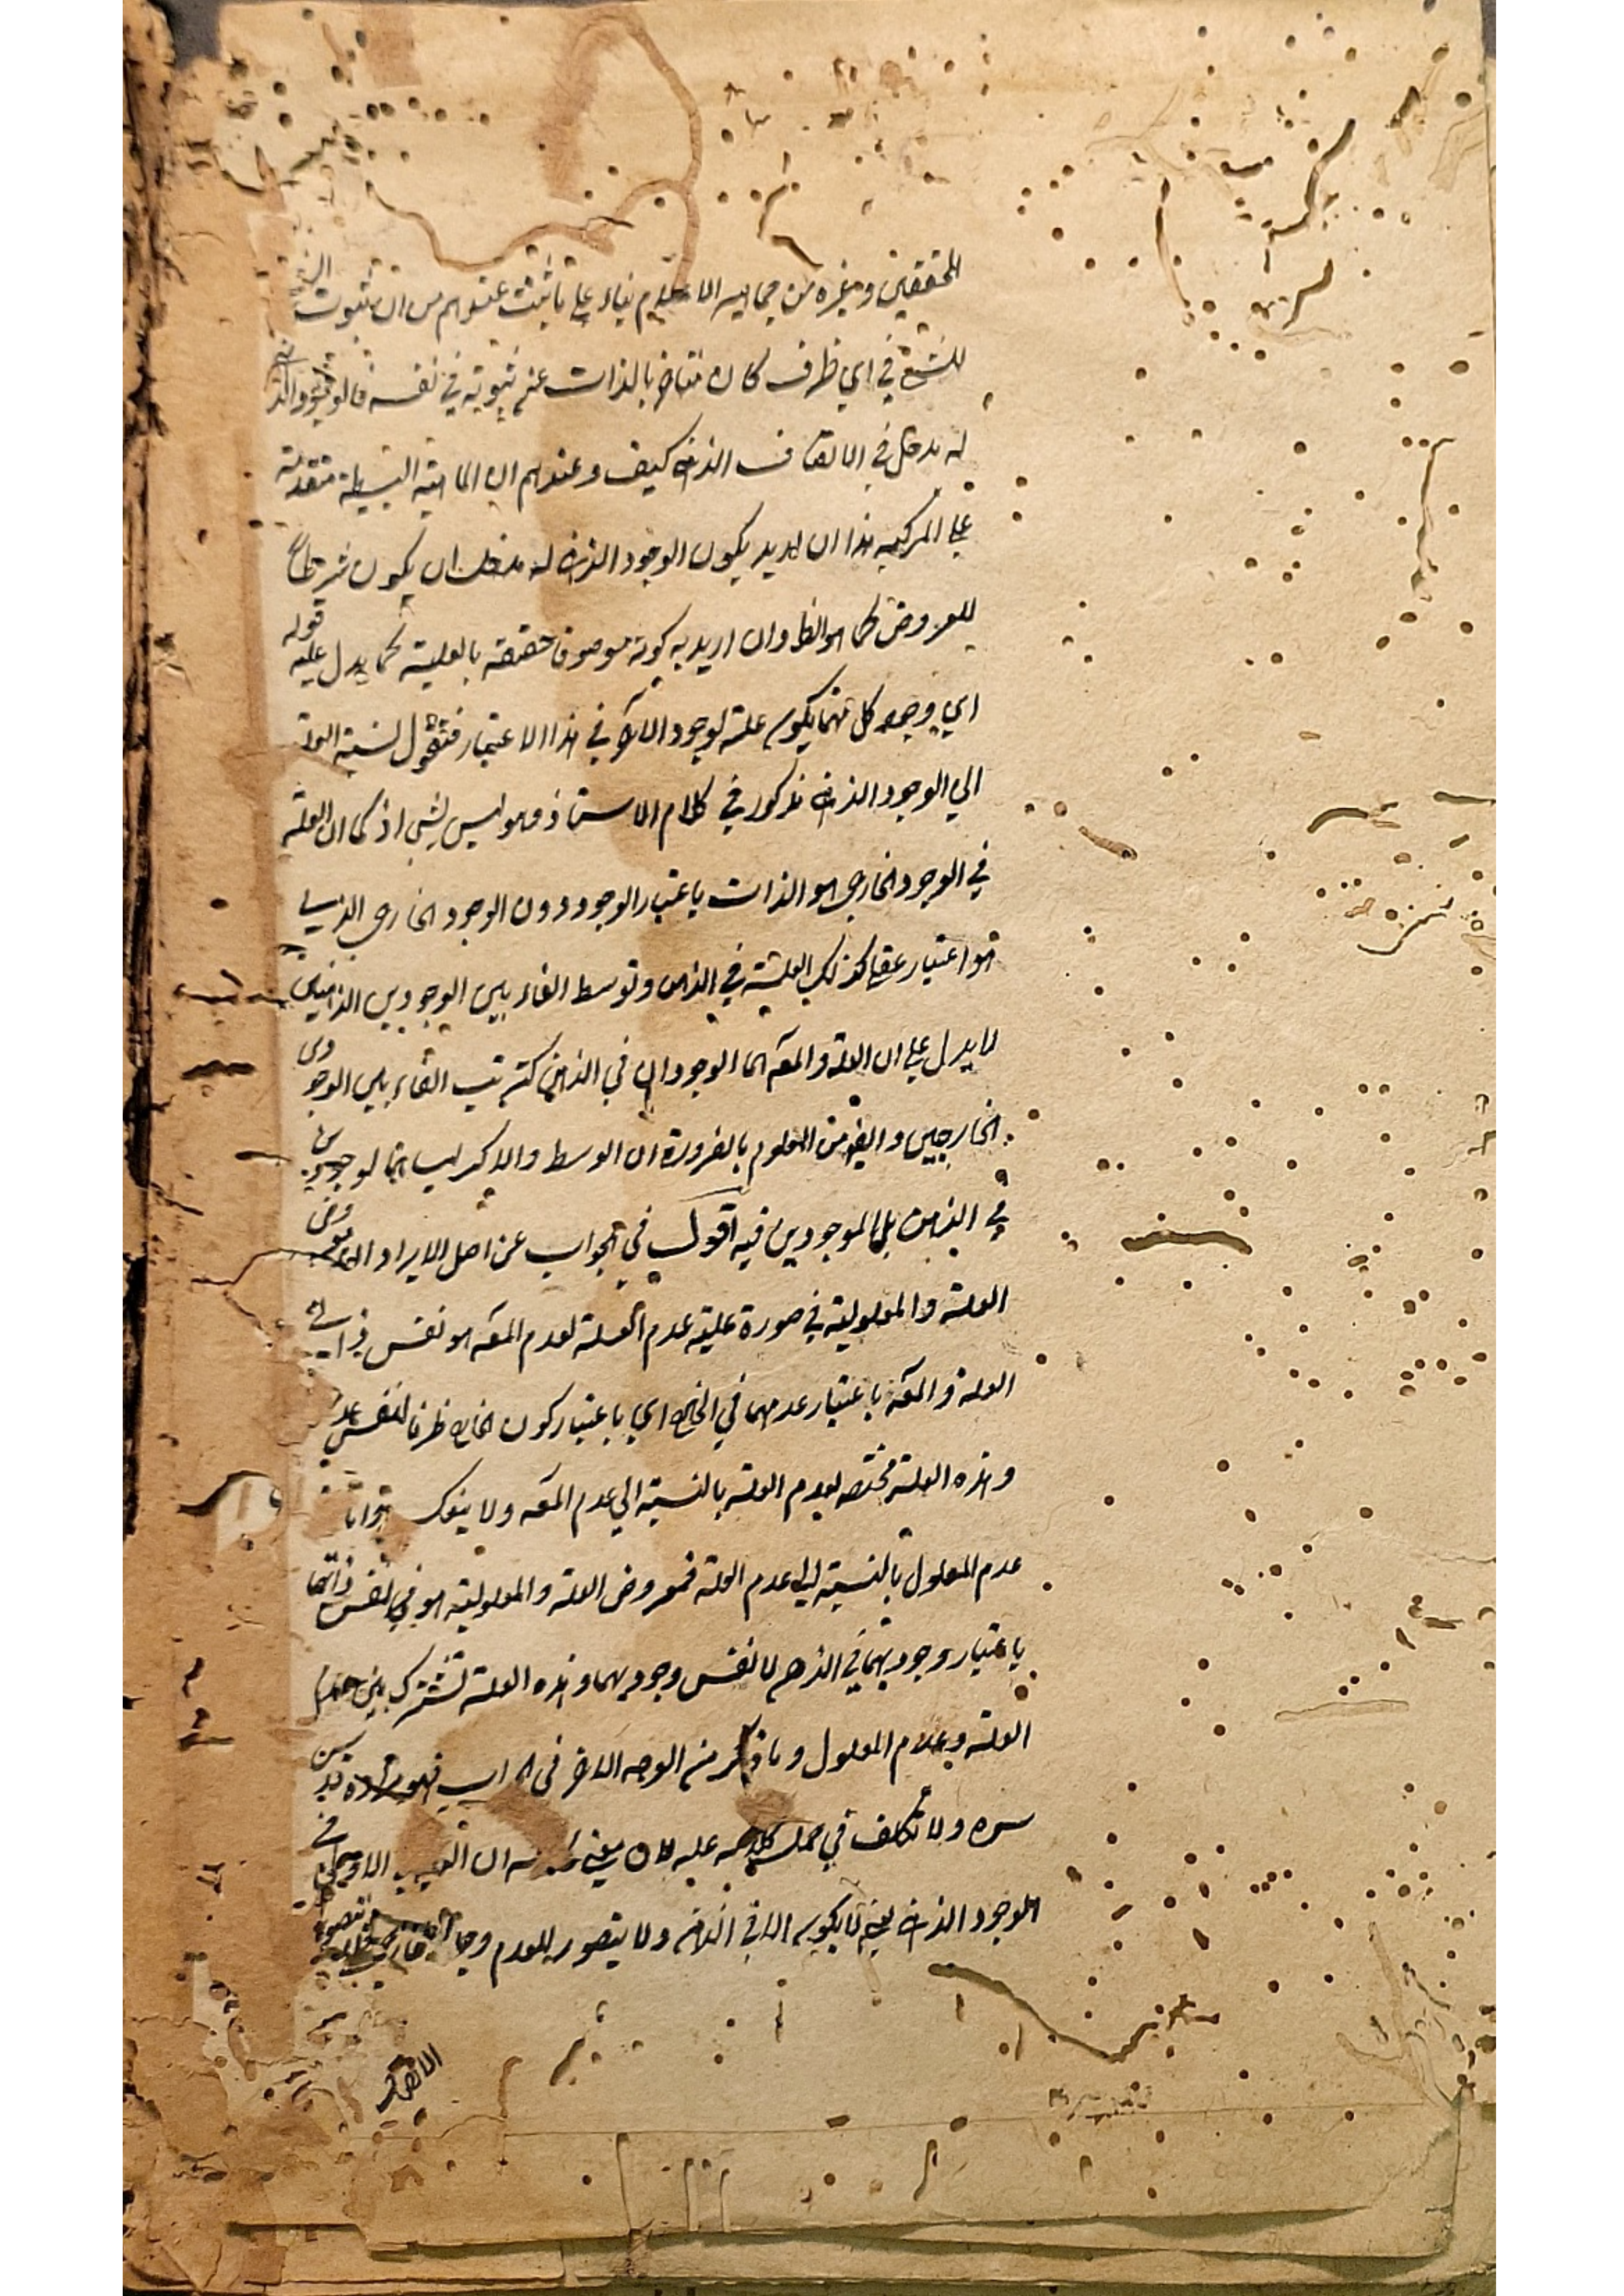 المحققين وغيره من جماهير الاعلام بناء على ما ثبت عندهم من ان ثبوت الشي
للشئ في اي ظرف كان متاخر بالذات عن ثبوته في نفسه فالوجود الذهني
له مدخل في الاتصاف الذهني كيف وعندهم ان الماهية البسيطة متقدمة
على المركبة هذا ان اريد بكون الوجود الذهني له مدخل ان يكون شرطا
للعروض كما هو الظ وان اريد به كونه موصوفا حقيقة بالعلية كما يدل عليه قوله
اي وجود كل منهما يكون علة لوجود الآخر في هذا الاعتبار فنقول نسبة العلة
الي الوجود الذهني مذكور في كلام الاستاذ وهو ليس بشئ اذ كما ان العلة
في الوجود الخارجي هو الذات باعتبار الوجود دون الوجود الخارجي الذي
هو اعتبار عقلي كذلك العلية في الذهن وتوسط الفاء بين الوجودين الذهنيين
لا يدل على ان العلة والمعه هما الوجودان في الذهن كترتيب الفاء بين الوجودين
الخارجيين وايضا من المعلوم بالضرورة ان الوسط والاكبر ليسا بموجودين
في الذهن بل الموجودين فيه اقول في الجواب عن اصل الايراد ان معروض
العلة والمعلولية في صورة علية عدم العلة لعدم المعه هو نفس ذاتي
العلة والمعه باعتبار عدمهما في الخارج اي باعتبار كون الخارج ظرفا لنفس عدم
وهذه العلة مختصه بعدم العلة بالنسبة الي عدم المعه ولا ينعكس
عدم المعلول بالنسبة الى عدم العلة فمعروض العلة والمعلولية هو في نفس ذاتهما
باعتبار وجوديتهما في الذهن لا نفس وجوديهما وهذه العلة تشترك بين عدم
العلة وعدم المعلول وما ذكر من الوجه الآخر في الجواب قدس
سره ولا تكلف في حمل كلامه عليه لان معنى ان
الموجود الذهني لا يكون الا في الذهن ولا يتصور للعدم وجود